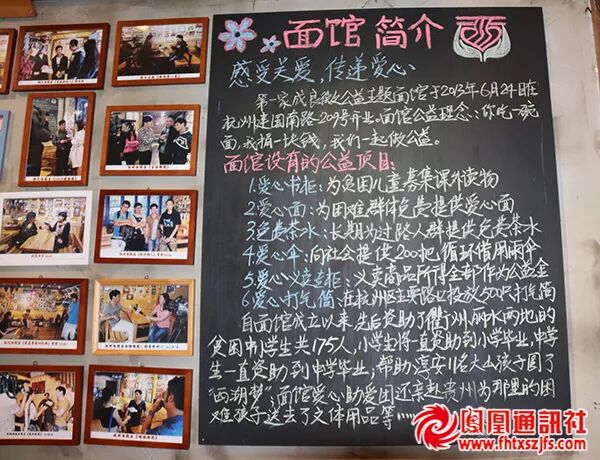 面馆简介
感受关爱，传递爱心
第一家成良微公益主题面馆于2013年6月24日在
杭州建国南路209号开业。面馆公益理念：你吃一碗
面，我捐一块钱，我们一起做公益。
面馆设有的公益项目：
1.爱心书柜：为贫困儿童募集课外读物
2.爱心面：为困难群体免费提供爱心面
3.免费茶水：长期为过路人群提供免费茶水
4.爱心伞：向社会提供200把循环借用雨伞
5.爱心义卖专柜：义卖商品所得全部作为公益金
6.爱心打气筒：在杭州区主要路口投放50只打气筒
自面馆成立以来，先后资助了衢州、丽水两地的
贫困中小学生共175人，小学生将一直资助到小学毕业，中学
生一直资助到中学毕业；帮助淳安11名大山孩子圆了
“西湖梦”；面馆爱心助爱团还亲赴贵州为那里的困
难孩子送去了文体用品等……
凤凰通訊社
www.fhtxszjfs.com